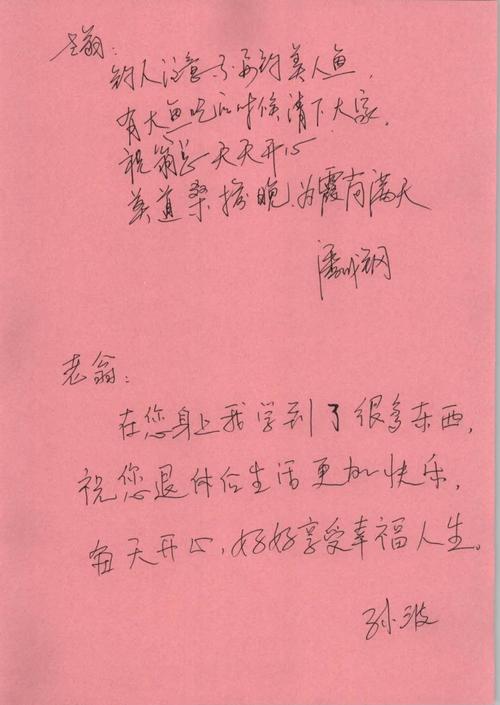 老翁:
钓人注意了再钓美人鱼,
有大鱼吃的时候请下大家,
祝翁总天天开心
莫道桑榆晚,为霞尚满天
潘成钢
老翁:
在您身上我学到了很多东西,
祝您退休后生活更加快乐,
每天开心,好好享受幸福人生。
孙波